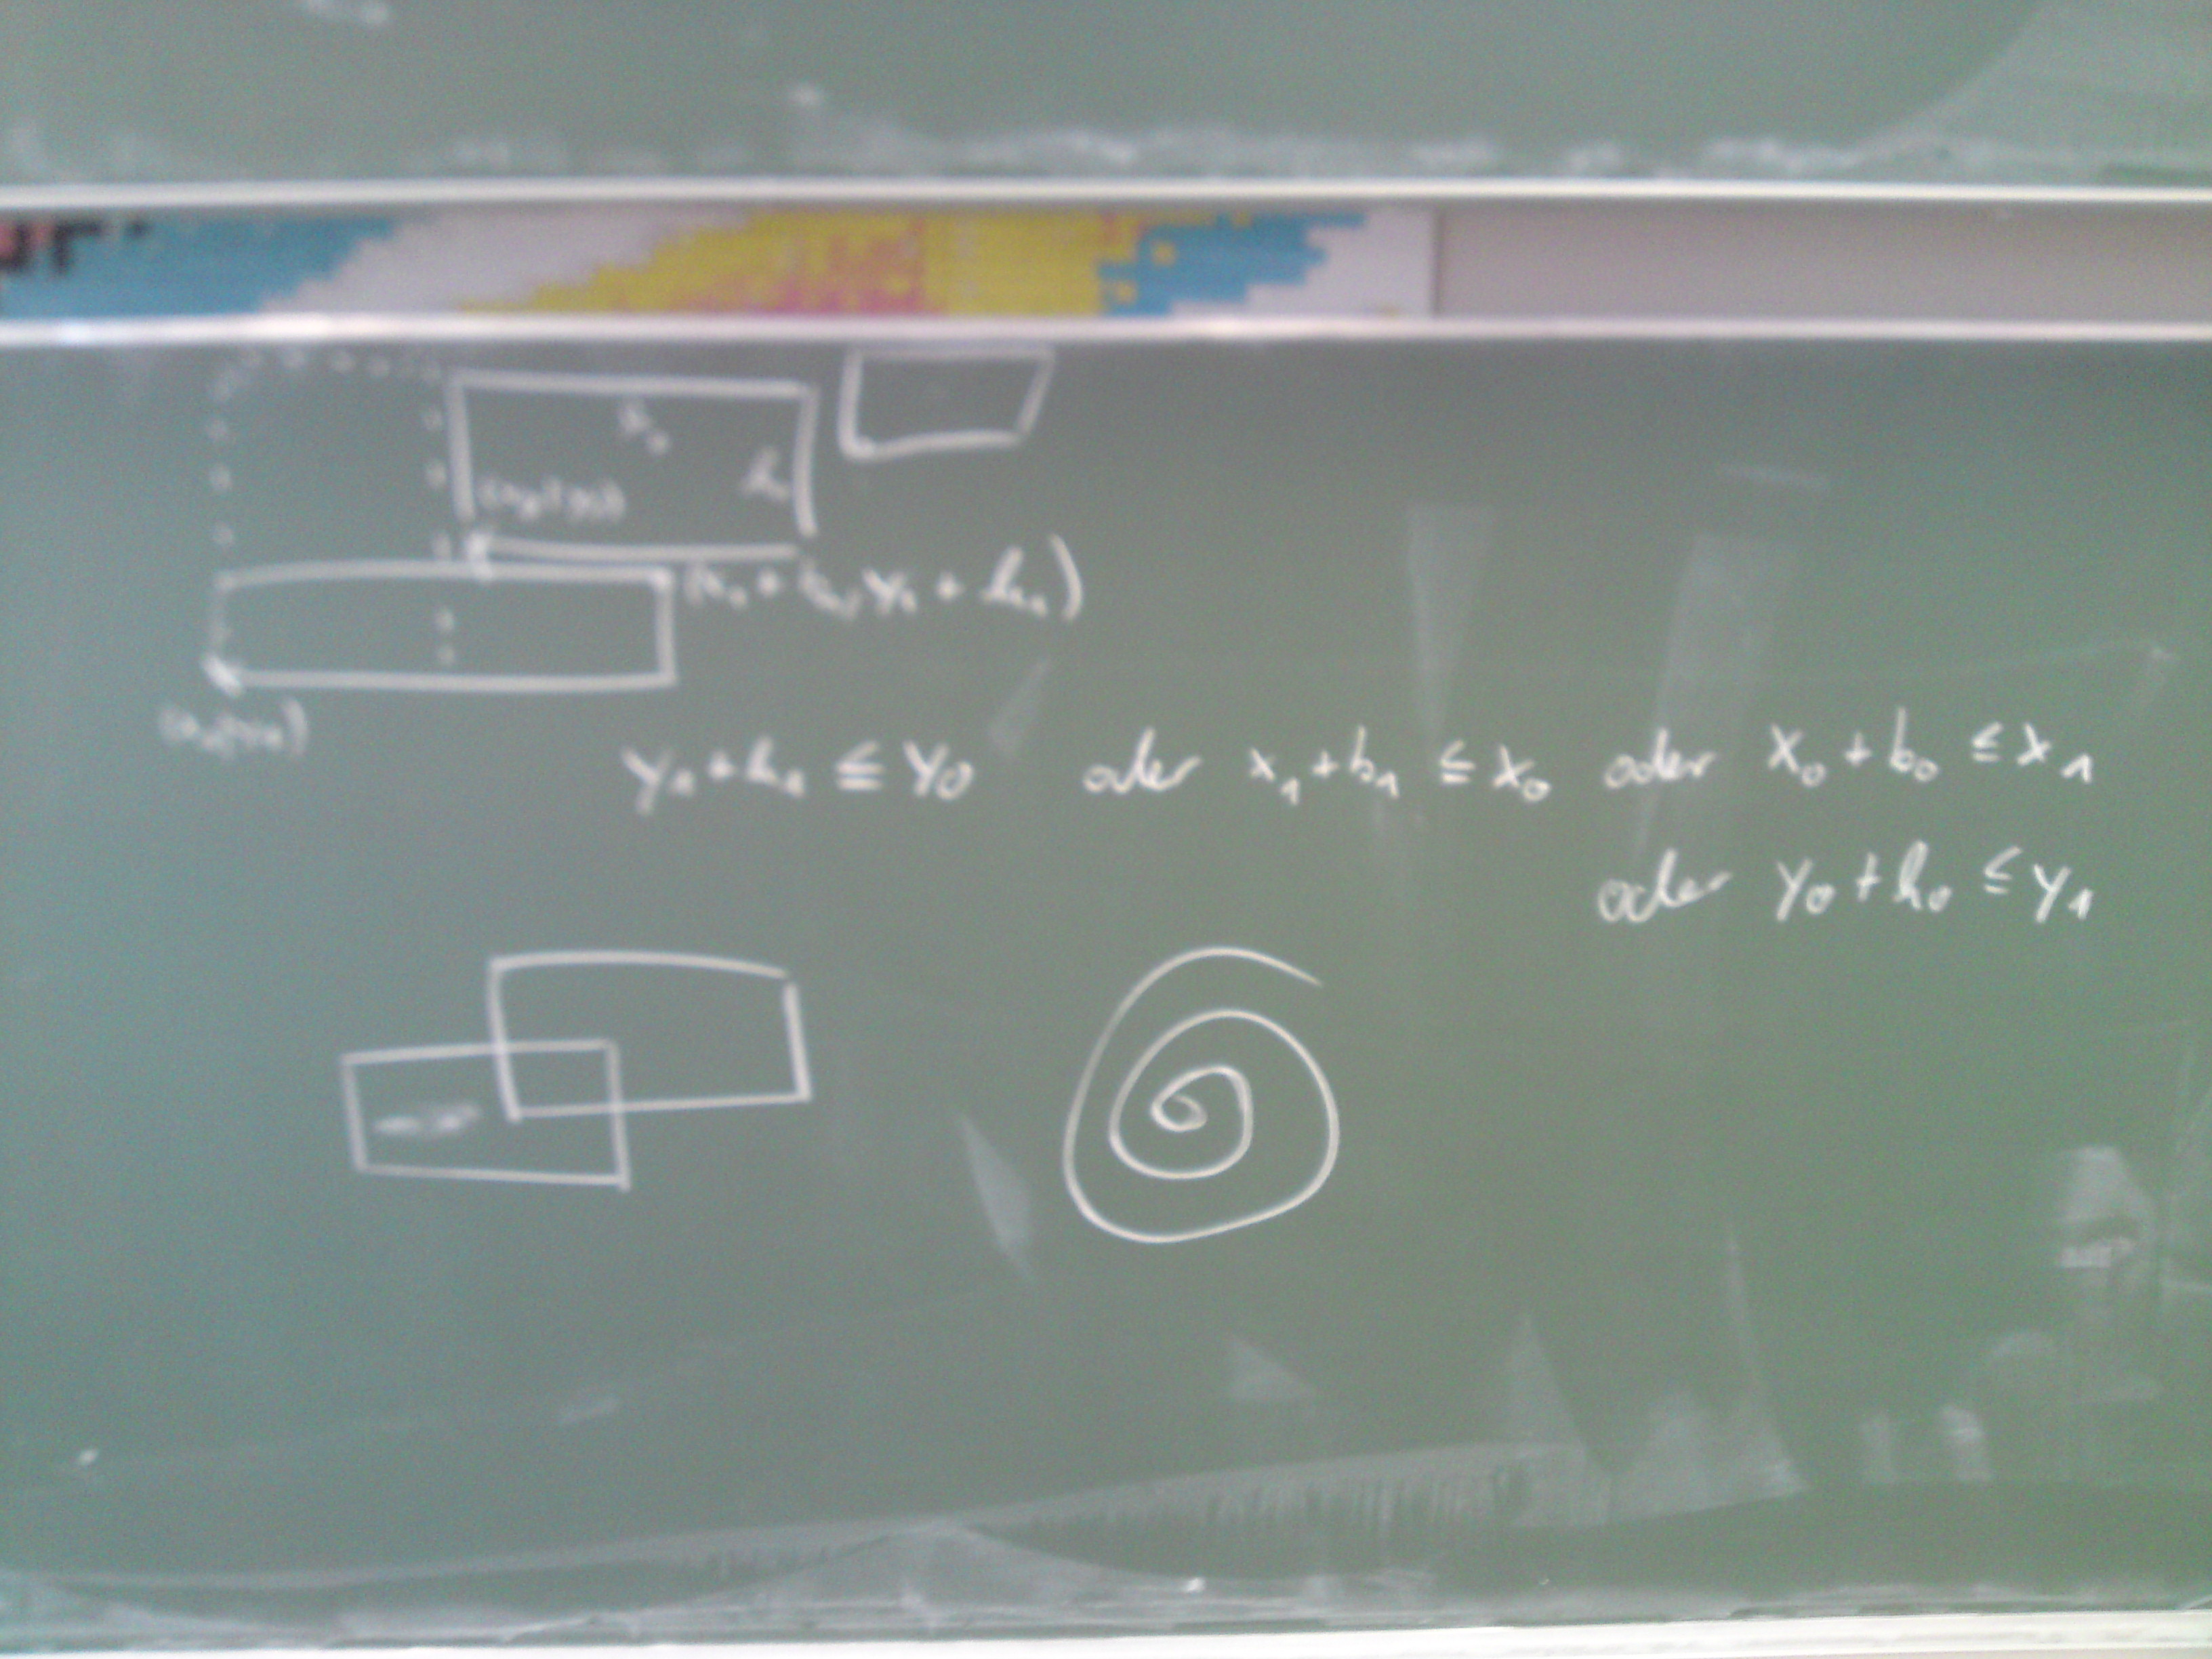 b₀
(x₁ + b₁, y₁ + h₁)
y₁ + h₁ ≦ y₀ oder x₁ + b₁ ≤ x₀ oder x₀ + b₀ ≤ x₁
oder y₀ + h₀ ≤ y₁